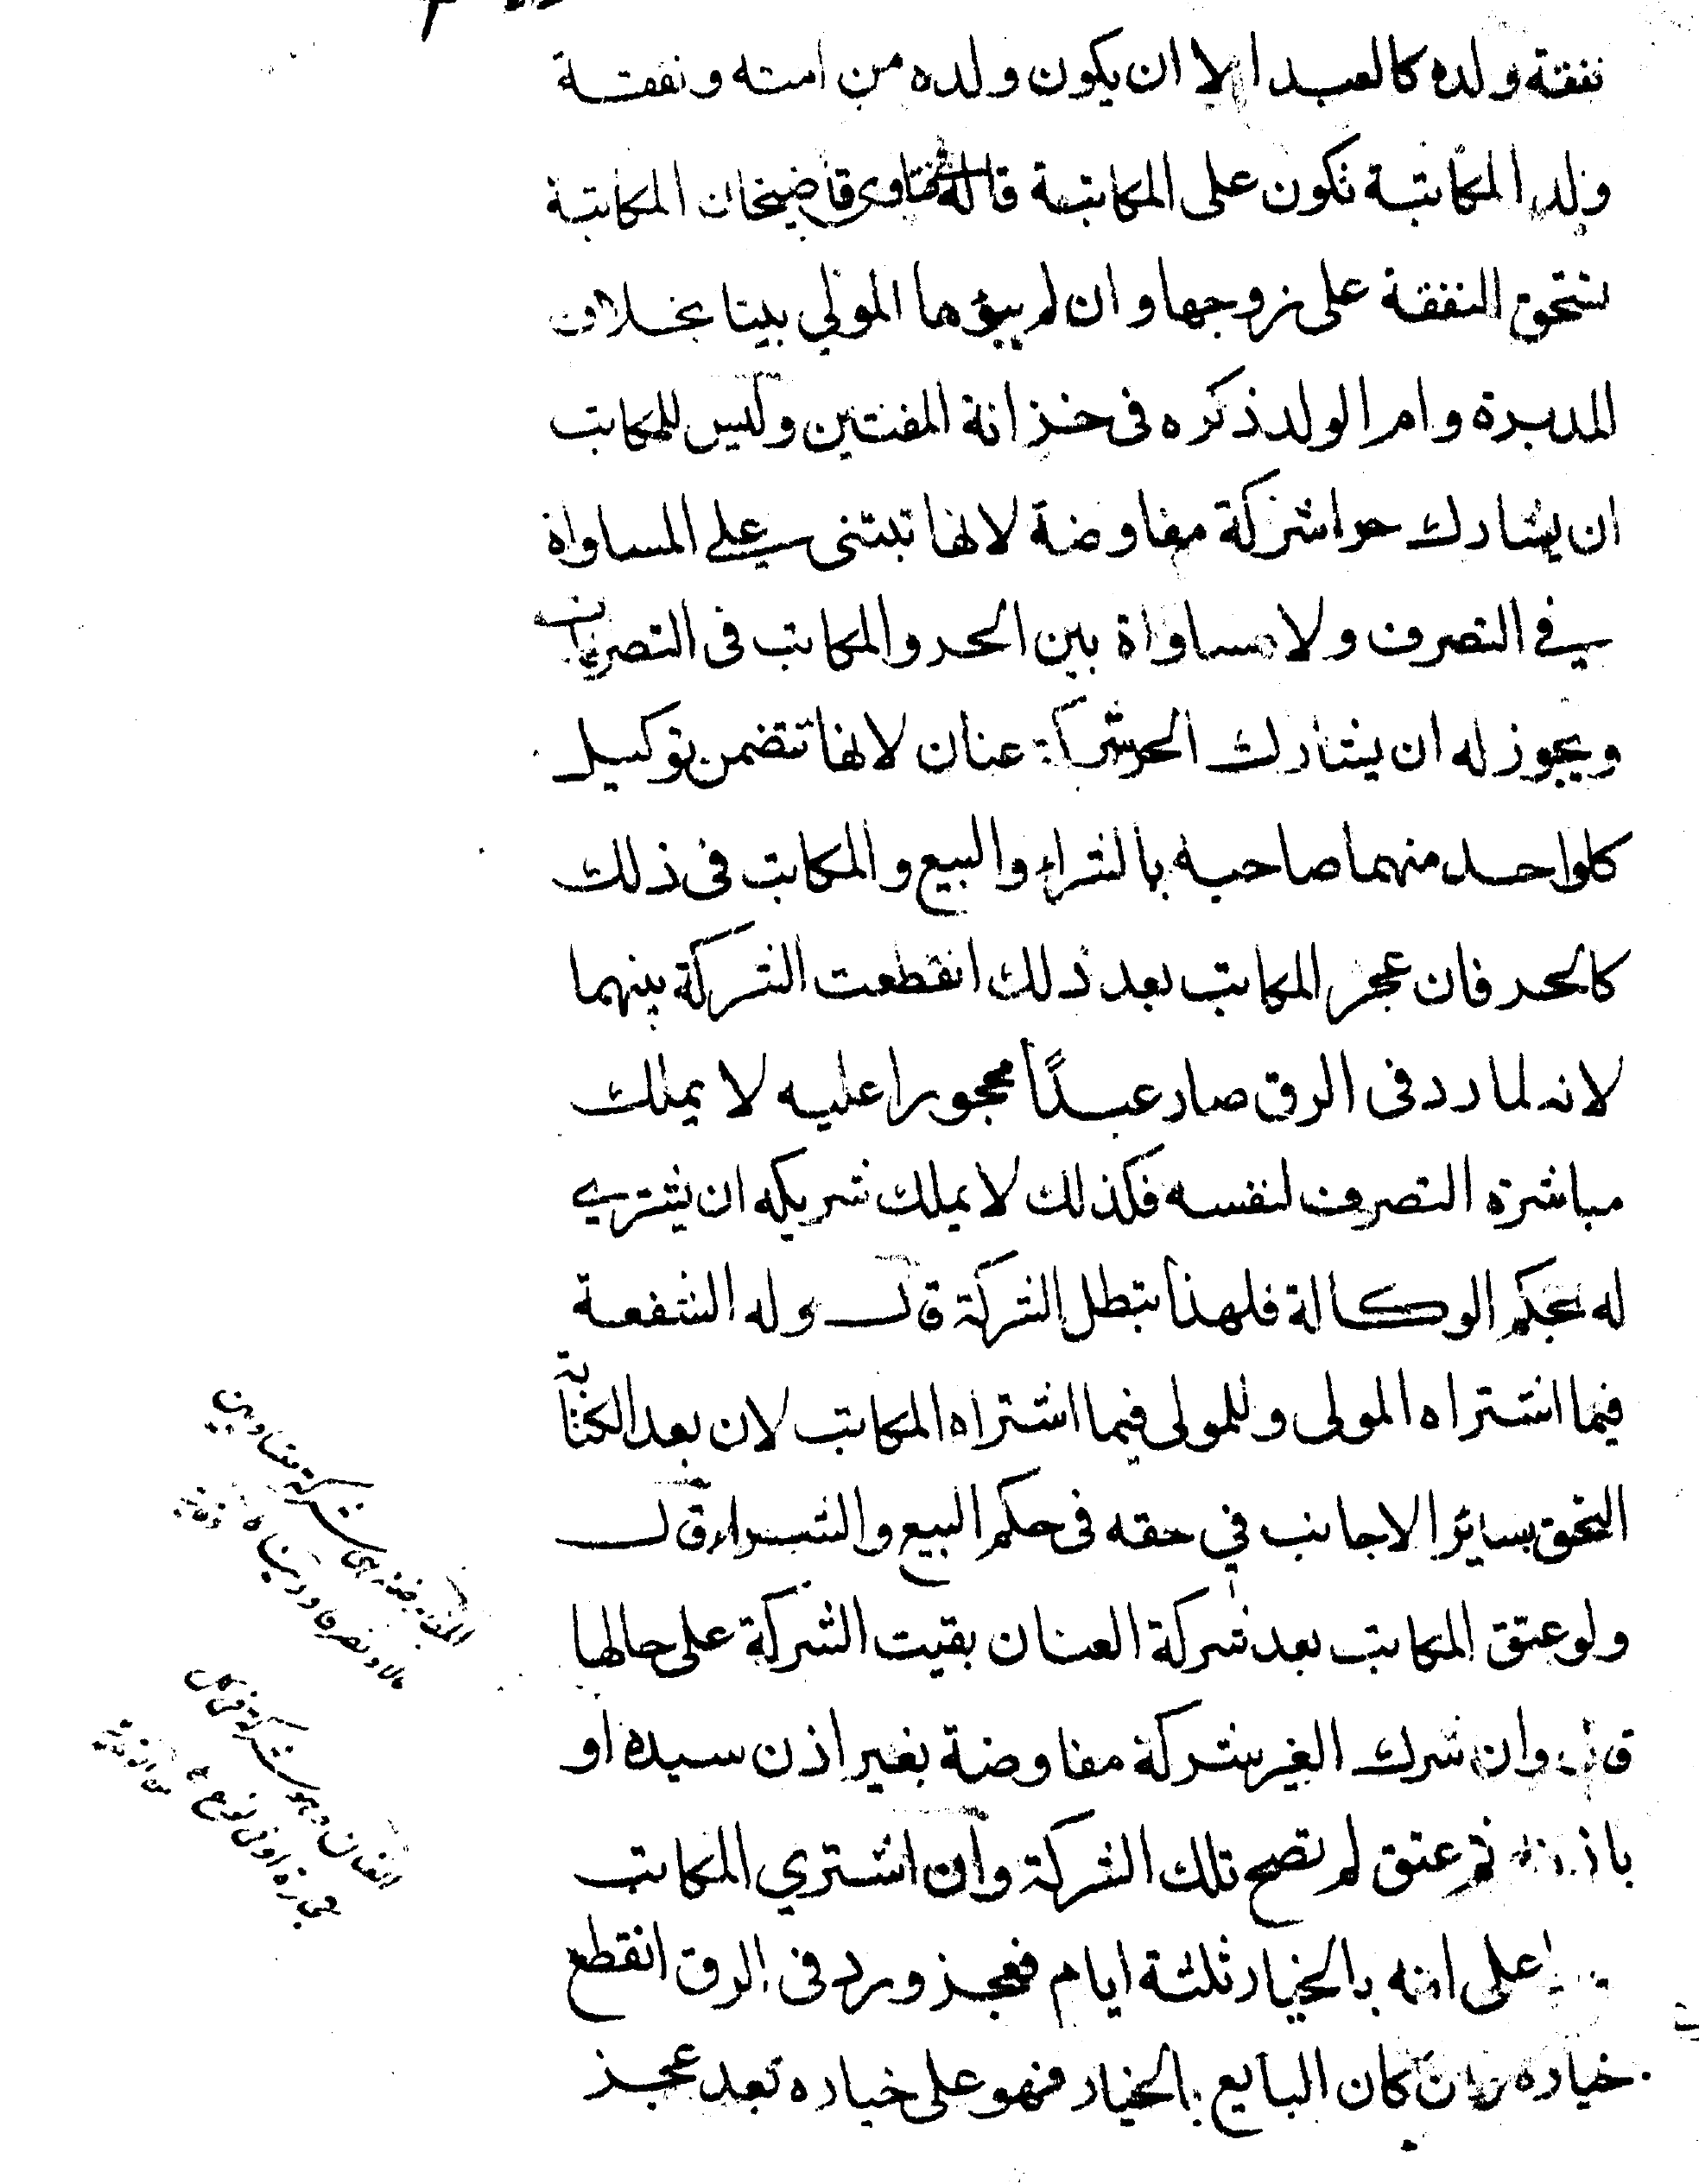 نفقة ولده كالعبد الا ان يكون ولده من امته ونفقة
ولد المكاتبة تكون على المكاتبة قاله فتاوى قاضيخان المكاتبة
تستحق النفقة على زوجها وان لم يبوؤها المولي بيتا بخلاف
المدبرة وام الولد ذكره فى خزانة المفتين وليس للمكاتب
ان يشارك حرا شركة مفاوضة لانها تبتنى على المساواة
في التصرف ولا مساواة بين الحر والمكاتب فى التصرفات
ويجوز له ان يشارك الحر شركة عنان لانها تتضمن توكيل
كلواحد منهما صاحبه بالشراء والبيع والمكاتب فى ذلك
كالحر فان عجز المكاتب بعد ذلك انقطعت الشركة بينهما
لانه لما رد فى الرق صار عبدًا محجورا عليه لا يملك
مباشرة التصرف لنفسه فكذلك لا يملك شريكه ان يشتري
له بحكم الوكالة فلهذا تبطل الشركة قال وله الشفعة
فيما اشتراه المولى وللمولى فيما اشتراه المكاتب لان بعد الكتابة
التحق بسائر الاجانب في حقه فى حكم البيع والشراء قال
ولو عتق المكاتب بعد شركة العنان بقيت الشركة على حالها
قال وان شرك الغير شركة مفاوضة بغير اذن سيده او
باذنه ثم عتق لم تصح تلك الشركة وان اشتري المكاتب
على انه بالخيار ثلثة ايام فعجز ورد فى الرق انقطع
خياره وان كان البايع بالخيار فهو على خياره بعد عجز